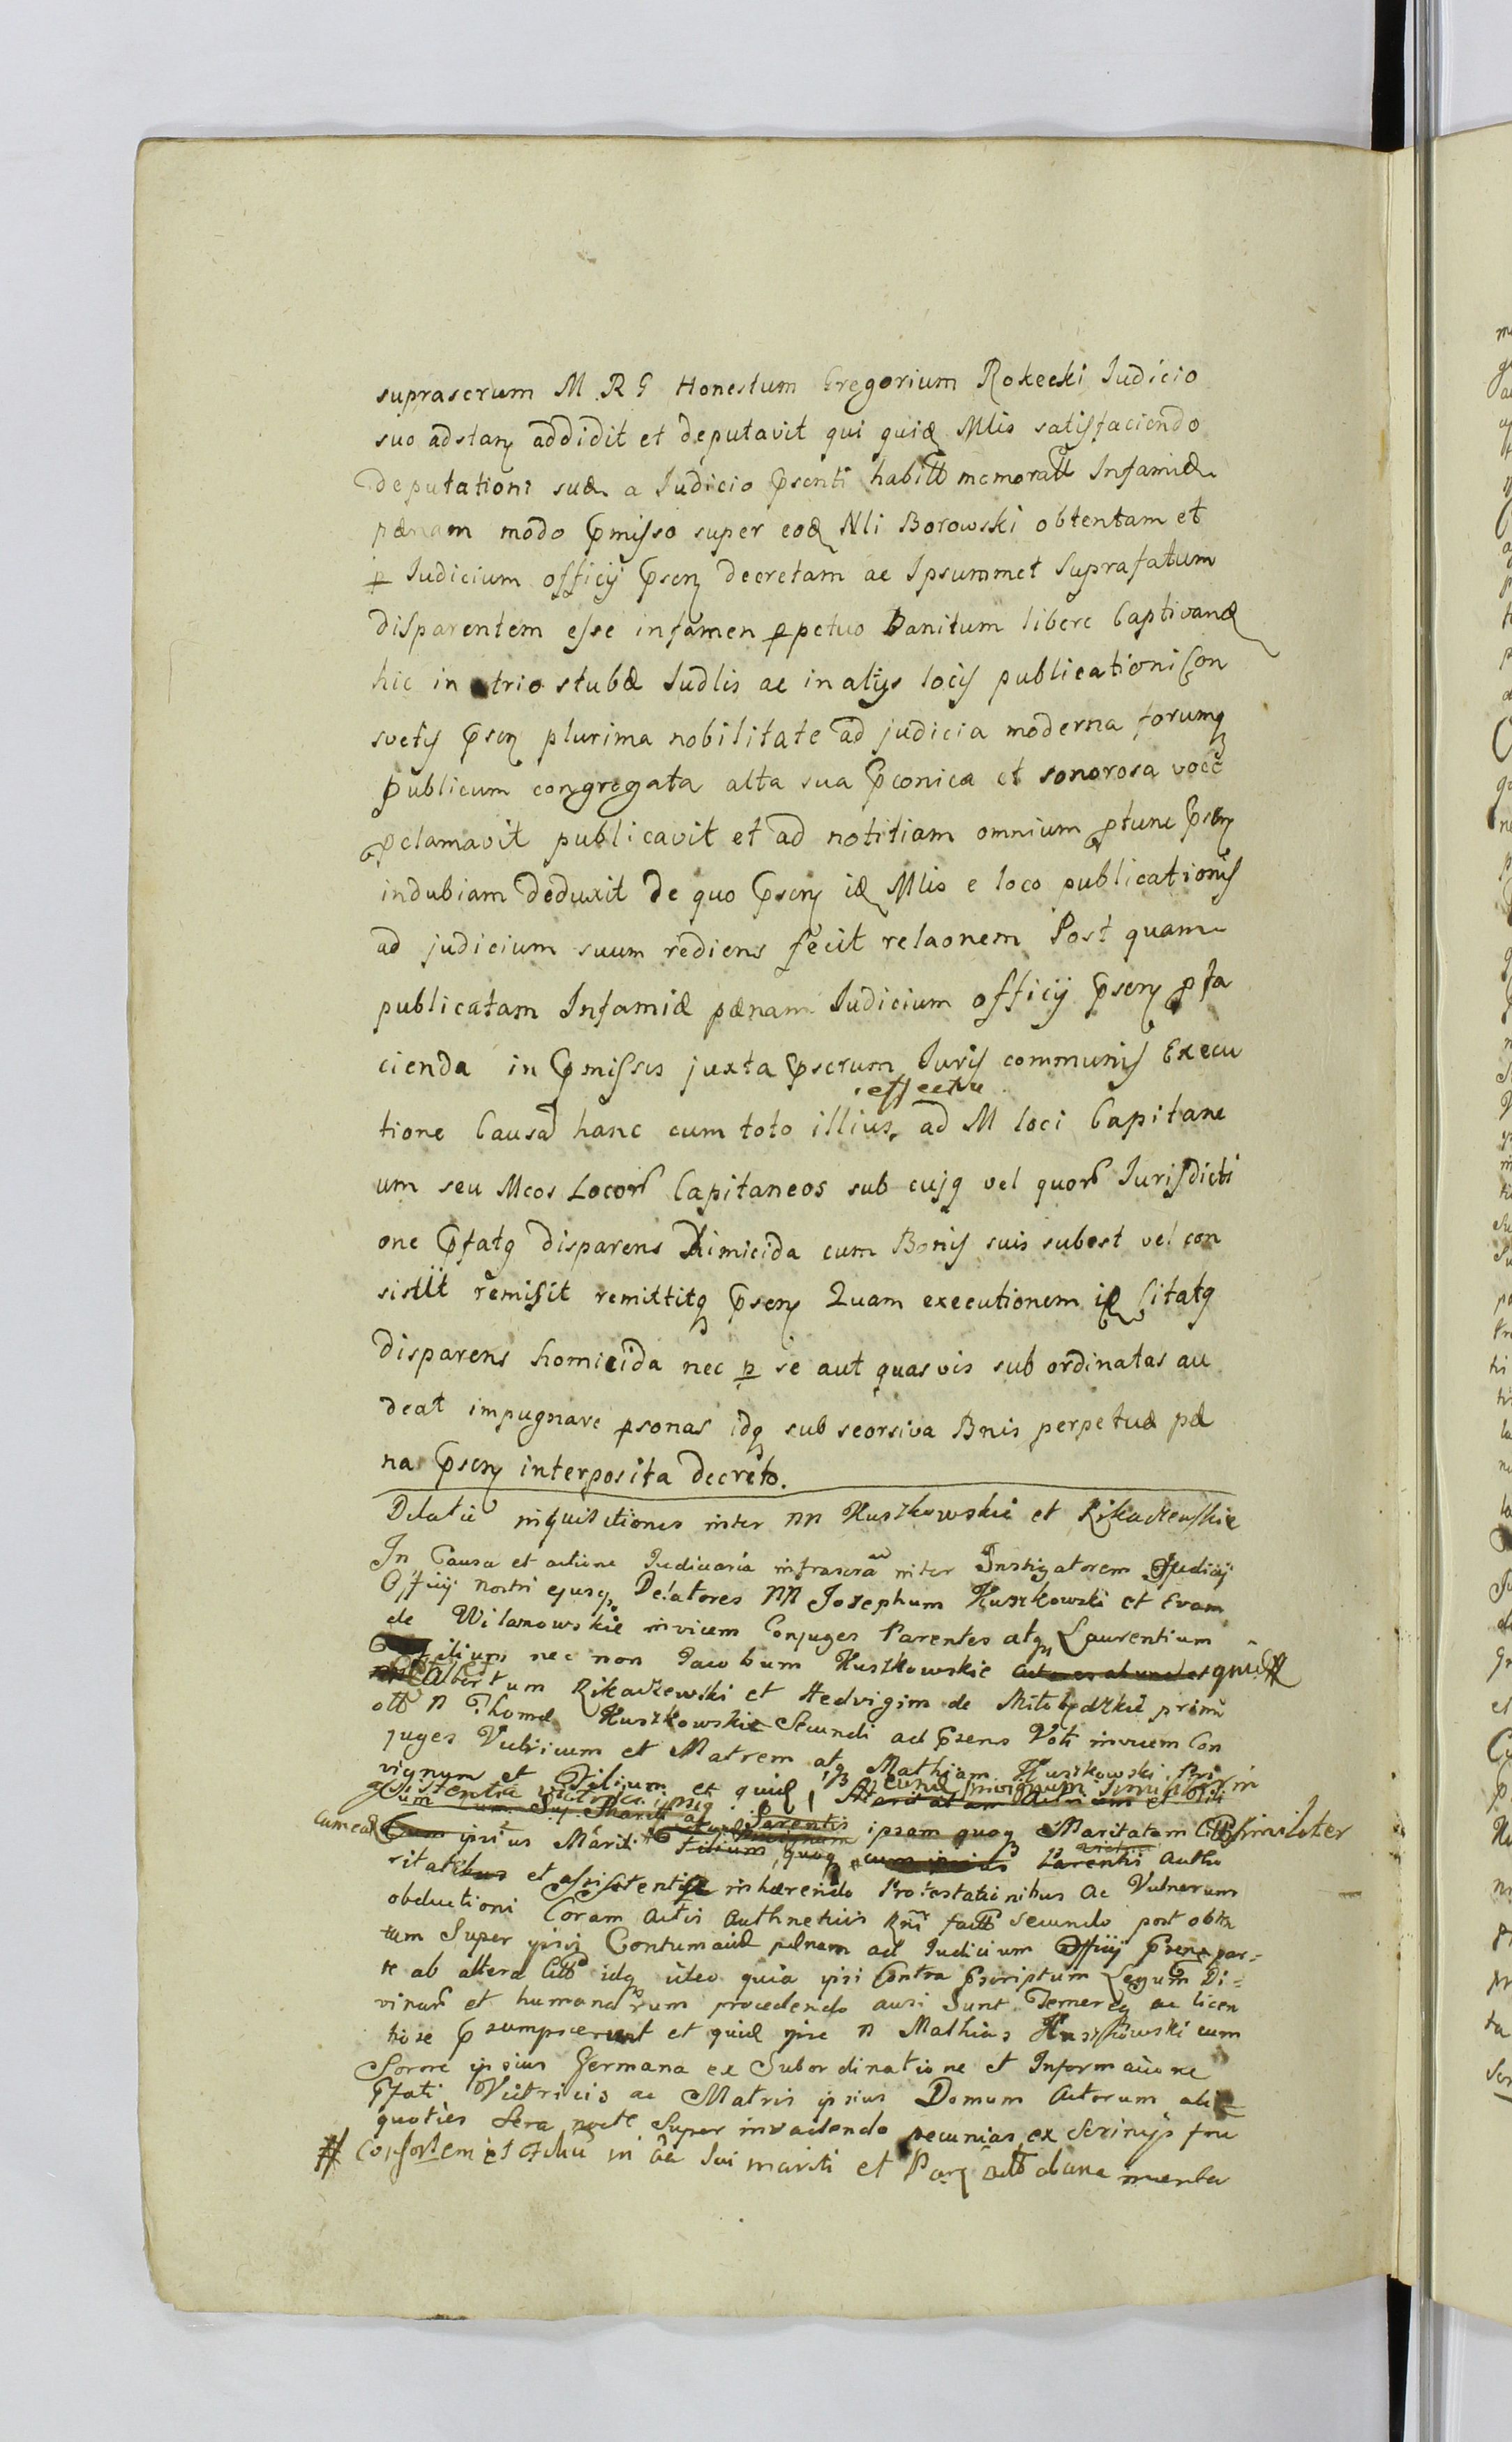 suprascrum M R G Honestum Gregorium Rokecki Judicio
suo adstanꝫ addidit et deputavit qui quidẽ Mlis satisfaciendo
deputationi suæ a Judicio Pꝑsenti habitæ memoratæ Infamiæ
pænam modo pꝑmisso super eodẽ Nli Borowski obtentam et
ꝑ Judicium officij pꝑsenꝫ decretam ac Ipsummet Suprafatum
disparentem esse infamem ꝑpetuo Banitum libere Captivandũ
hic in atrio stubæ Judlis ac in alijs locis publicationi Con
svetis pꝑsenꝫ plurima nobilitate ad judicia moderna forumqꝫ
publicum congregata alta sua pꝑconica et sonorosa voce
ꝓclamavit publicavit et ad notitiam omnium ꝓtunc pꝑsenꝫ
indubiam deduxit De quo pꝑsenꝫ idẽ Mlis e loco publicationis
ad judicium suum rediens fecit relaonem Post quam
publicatam Infamiæ pænam Judicium officij pꝑsenꝫ ꝓ fa
cienda in pꝑmissis juxta pꝑscrum Juris communis Execu
effectu
tione Causã hanc cum toto illius ad M loci Capitane
um seu Mcos Locorũ Capitaneos sub cujqꝫ vel quorũ Jurisdicti
one pꝑfatqꝫ disparens Himicida cum Bonis suis subest vel con
sistit remisit remittitqꝫ pꝑsenꝫ Quam executionem idẽ Citatqꝫ
disparens homicida nec ꝑ se aut quasvis sub ordinatas au
deat impugnare ꝑsonas idqꝫ sub seorsiva Bnis perpetuæ pæ
na pꝑsenꝫ interposita decreto.
Dilatio inquisitiones inter NN Kuszkowskie et Rikaczewskie
In Causa et actione Judiciaria infrascrã inter Instigatorem Judicij
Officij nostri ejusqꝫ Delatores NN Josephum Kuszkowski et Evam
de Wilamowskie invicem Conjuges Parentes atqꝫ Laurentium
Filium nec non Jacobum Kuszkowskie actores ab una et quid #
Albertum Rikaczewski et Hedvigim de Mitobędzkie primi
olĩ N Thomæ Kuszkowskie Secundi ad pꝑsens Voti invicem Con
juges Vitricum et Matrem atqꝫ Mathiam Kuszkowski Pri
vignum et Filium et quidẽ
assistentia vitrici ipsiqꝫ
cum ead ipsius Mariti Filium quoqꝫ cum ipsius Parentis autho
ipsam quoqꝫ Maritatam similiter
ritatibus et assistentia inhærendo Protestationibus ac Vulnerum
obductioni Coram Actis Authneticis Rni factæ secundo post obten
tam Super ipsis Contumaciæ pænam ad Judicium Officij pꝑsens par=
te ab altera Citõ idqꝫ ideo quia ipsi Contra pꝑscriptum Legum Di=
vinarũ et humanarum procedendo ausi Sunt Temereqꝫ ac licen
tiose pꝑsumpserunt et quidẽ ipse N Mathias Kuszkowski cum
Sorore ipsius Germana ex Subordinatione et Informacione
pꝑfati Vitricis ac Matris ipsius Domum Actorum ali=
quoties Sera nocte Super invadendo pecunias ex Scrinijs fru
# Consortem et Filiũ in Sui mariti et Parꝫ ab una